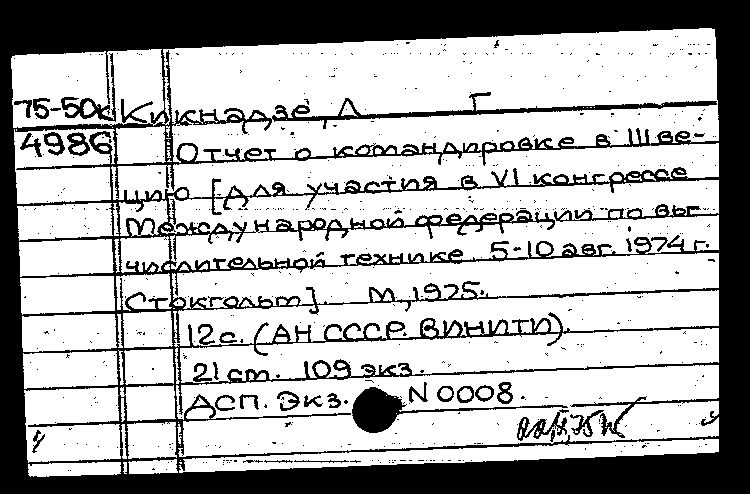 75-50к Кикнадзе, Л Г
4986 Отчет о командировке в Шве-
цию [для участия в VI конгрессе
Международной федерации по вы-
числительной технике. 5-10 авг. 1974 г.
Стокгольм]. М, 1975.
12 с. (АН СССР. ВИНИТИ).
21 см. 109 экз.
ДСП. Экз. N 0008.